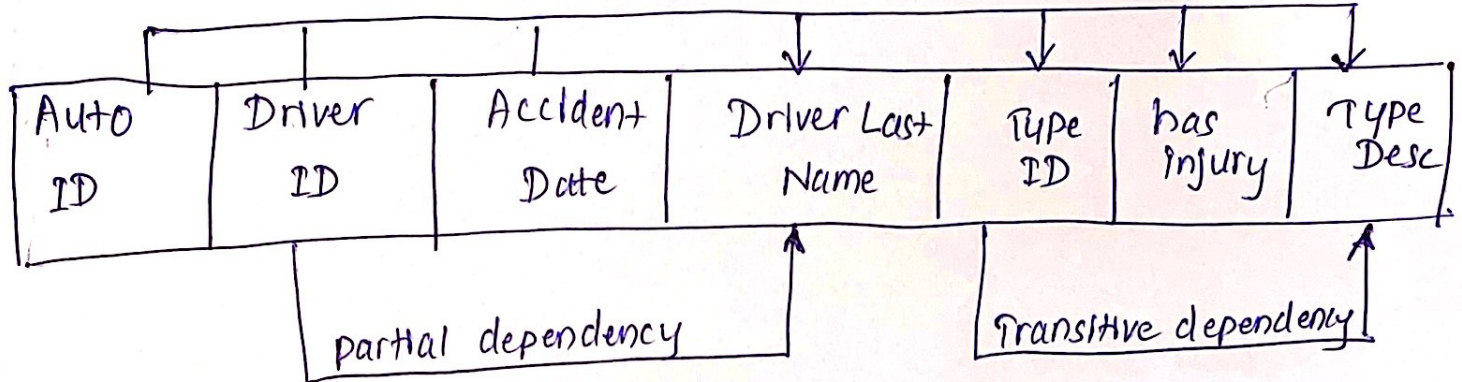 Auto ID
Driver ID
Accident Date
Driver Last Name
Type ID
has injury
Type Desc
partial dependency
Transitive dependency